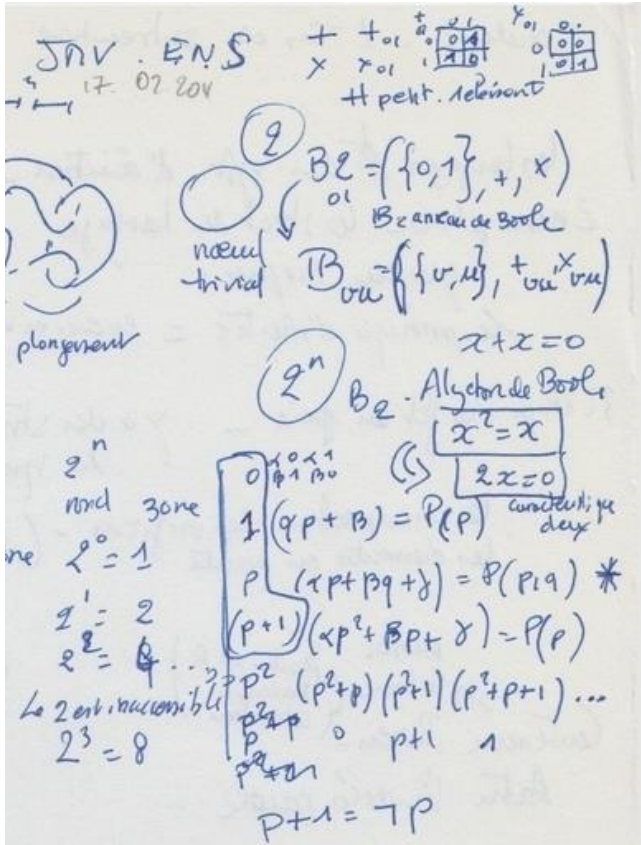 JMV. ENS + +₀₁ + 0 1
17. 02 201 × ×₀₁ ×₀₁ 0 1
0 0 1 0 0 0
1 1 0 1 0 1
2
B2 = ({0,1}, +, ×)
01
B = anneau de Boole
nœud
trivial
𝔹vu = ({v,u}, +vu, ×vu)
plongement
x + x = 0
2ⁿ
B2. Algèbre de Boole
x² = x
2x = 0
caractéristique
deux
2ⁿ
nœud zone
2⁰ = 1
2¹ = 2
2² = 4 ...
Le 2 est inaccessible
2³ = 8
0 α0 α1
β1 β0
1 (αp + β) = P(p)
p (αp + βq + γ) = P(p,q) *
(p+1) (αp² + βp + γ) = P(p)
p² (p²+p) (p²+1) (p²+p+1) ...
p²+p
p 0 p+1 1
p²+1
p+1 = ¬p